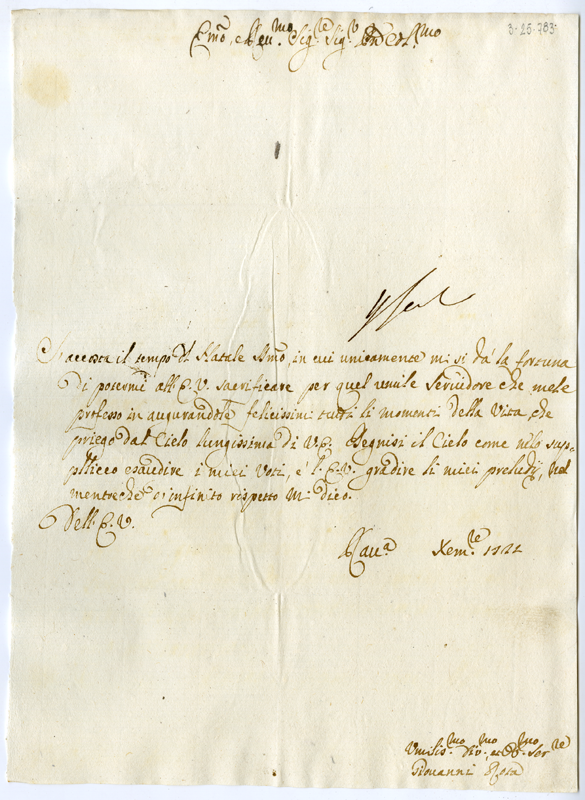 3-25-783-
Emo, e Rev.mo Sig.re Sig.r Pn Col.mo
S'accosta il tempo dl Natale Smo, in cui unicamente mi si dà la fortuna
di potermi all' E.V. sacrificare per quel umile Servidore che mele
professo in augurandole felicissimi tutti li momenti della Vita, che
priego dal Cielo lungissima di V.E. Degnisi il Cielo come nelo sup=
plico esaudire i miei Voti, e l' E.V. gradire li miei preludi, nel
mentreche c/ infinito rispetto mi dico.
Dell' E.V.
Xem.re
Umilis.mo Div.mo, et Obb.mo Ser.re
Giovanni Rota